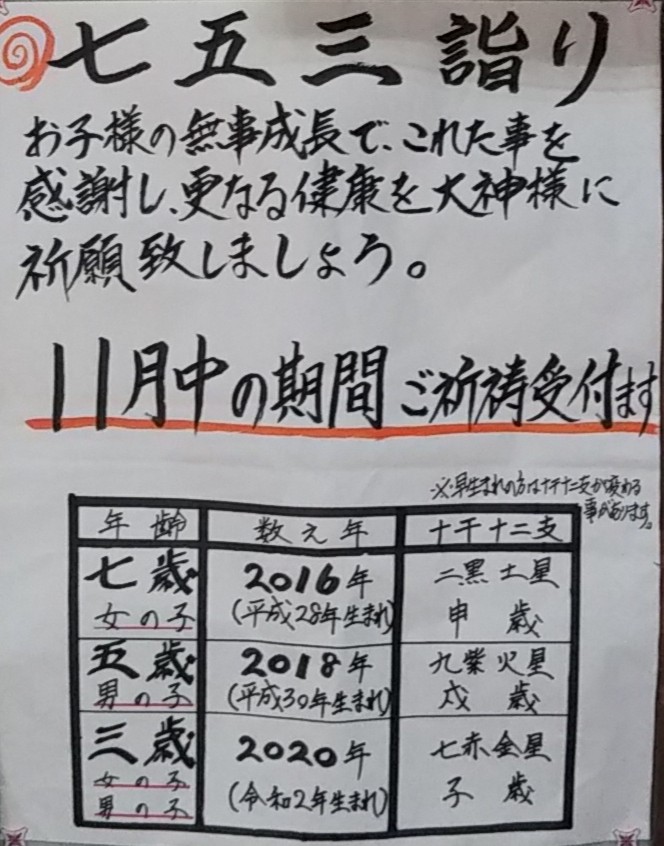 七五三詣り
お子様の無事成長で、これた事を
感謝し、更なる健康を大神様に
祈願致しましょう。
11月中の期間ご祈祷受付ます
※早生まれの方は十干十二支が変わる
事があります。
年齢 数え年 十干十二支
七歳 2016年 二黒土星
女の子 (平成28年生まれ) 申歳
五歳 2018年 九紫火星
男の子 (平成30年生まれ) 戌歳
三歳 2020年 七赤金星
女の子 (令和2年生まれ) 子歳
男の子